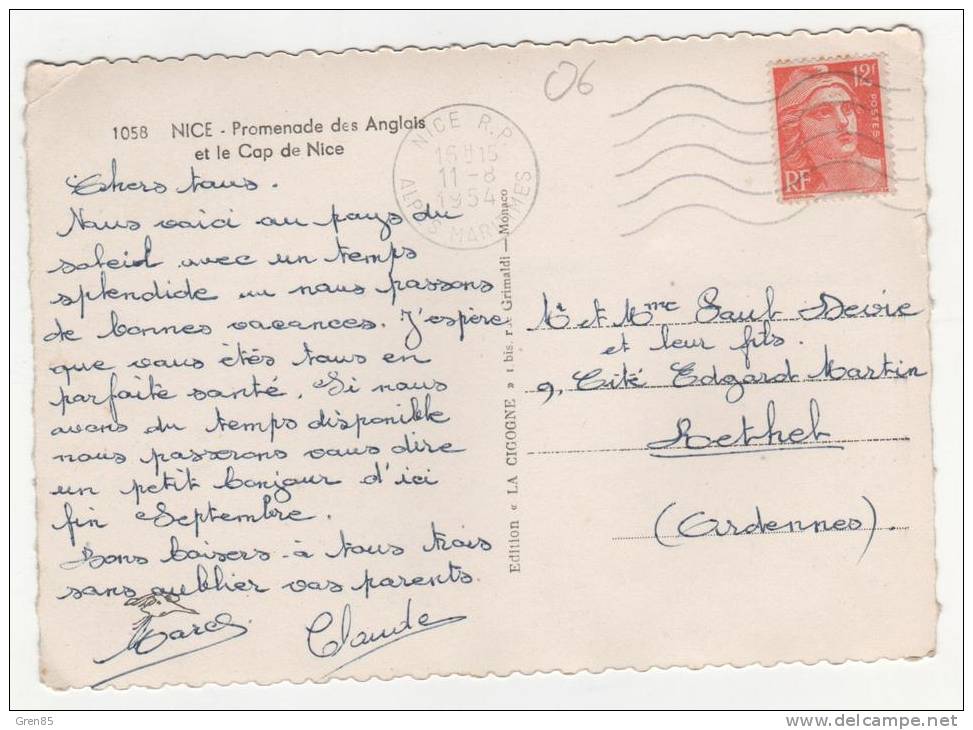 1058 NICE - Promenade des Anglais
et le Cap de Nice
Chers tous.
Nous voici au pays du
soleil avec un temps
splendide nous passons
de bonnes vacances. J'espère
que vous êtes tous en
parfaite santé. Si nous
avons du temps disponible
nous passerons vous dire
un petit bonjour d'ici
fin Septembre.
Bons baisers à tous trois
sans oublier vos parents.
Marc
Claude
06
NICE R.P.
15H15
11-8
1954
ALPES MARITIMES
12f
POSTES
RF
Edition « LA CIGOGNE » 1 bis. r. Grimaldi — Monaco
Mr et Mme Paul Devie
et leur fils.
9, Cité Edgard Martin
Rethel
(Ardennes).
Gren85
www.delcampe.net